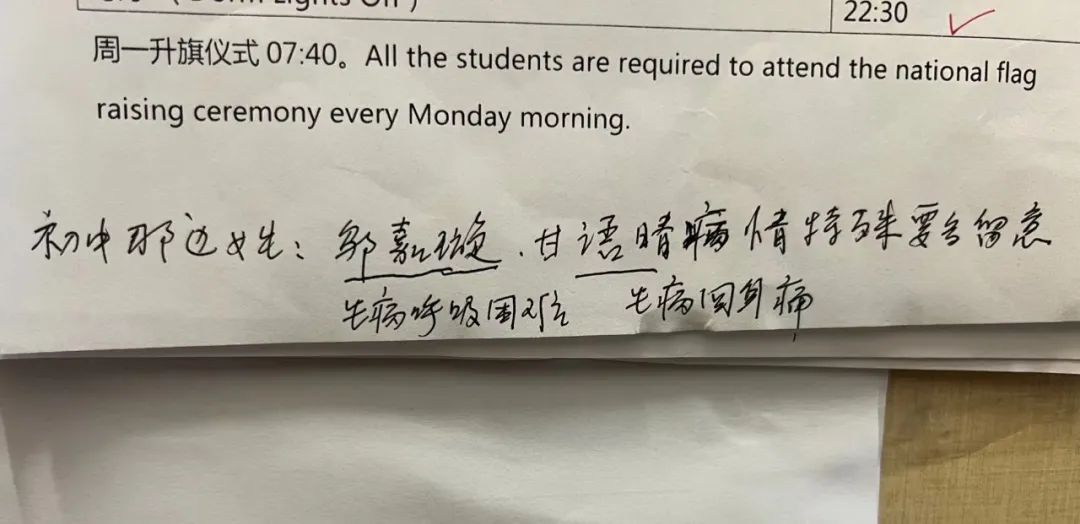 (Dorm Lights Off)
22:30
周一升旗仪式 07:40。All the students are required to attend the national flag
raising ceremony every Monday morning.
初中那边女生：邹嘉璇、甘语晴病情特殊要多留意
生病呼吸困难 生病会耳痛